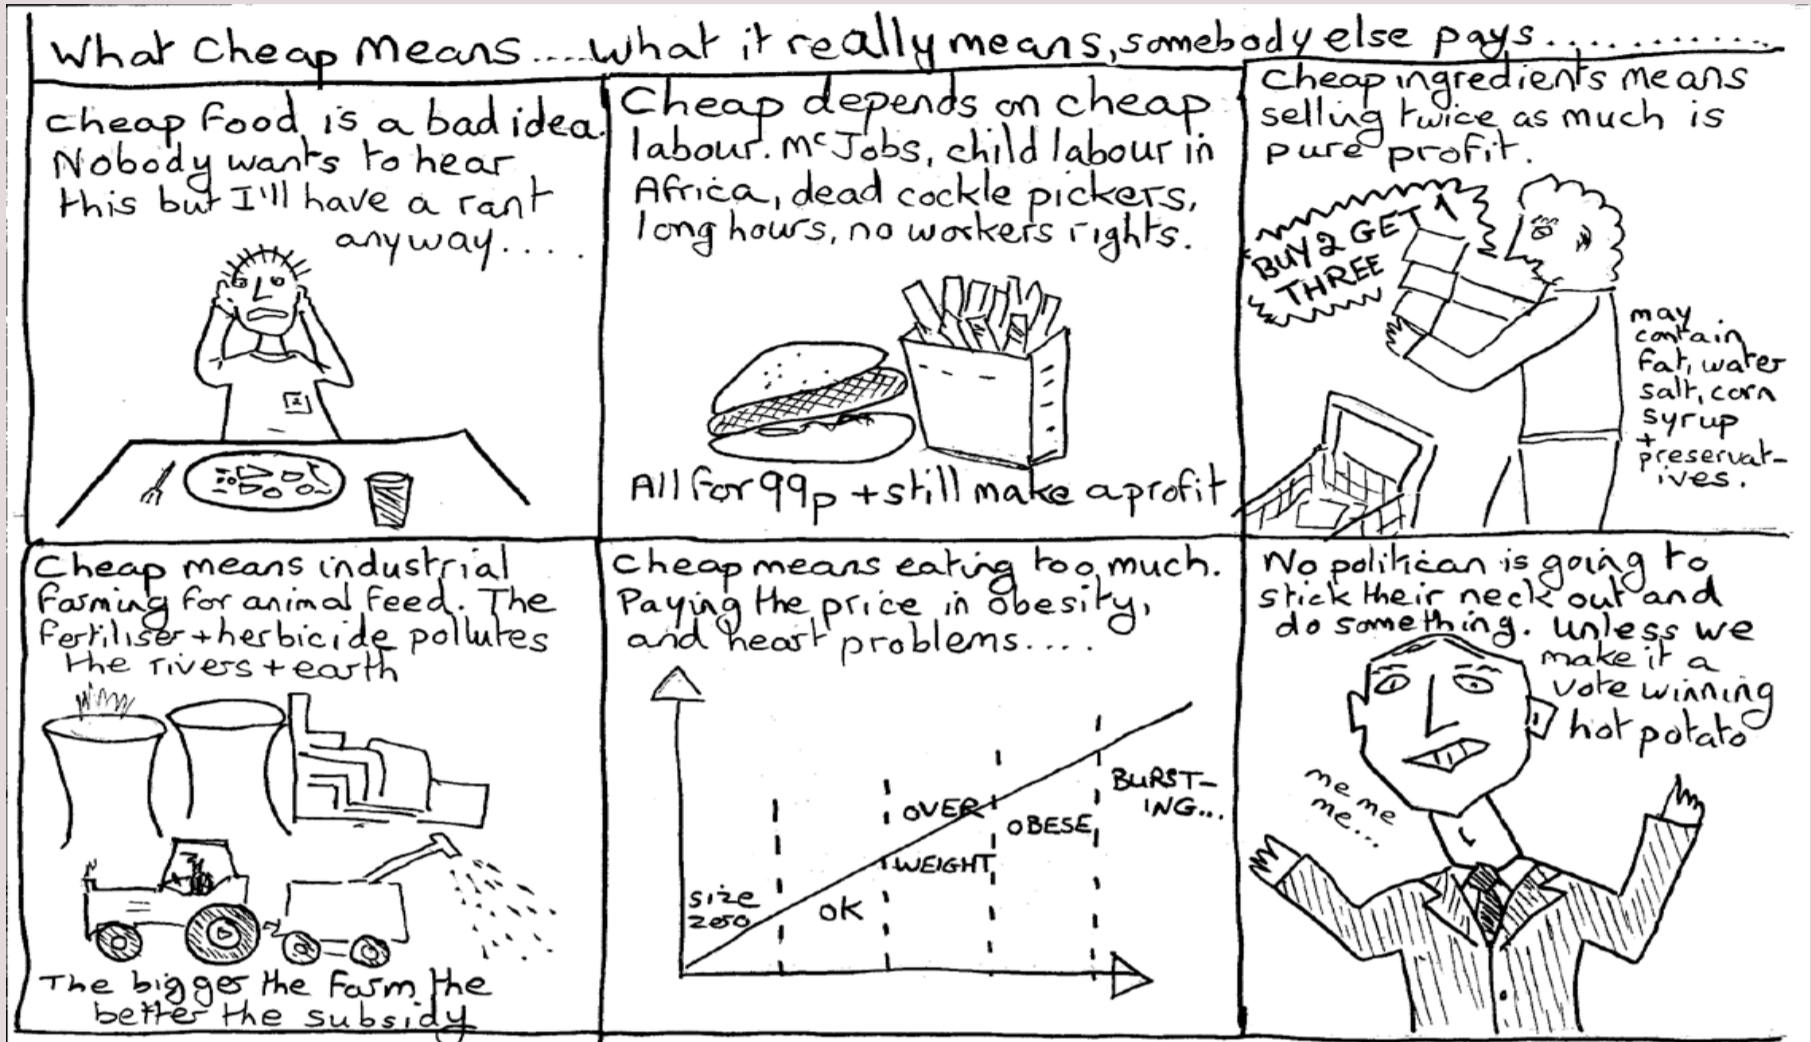 What Cheap Means.....what it really means, somebody else pays............
Cheap food is a bad idea.
Nobody wants to hear
this but I'll have a rant
anyway....
Cheap depends on cheap
labour. McJobs, child labour in
Africa, dead cockle pickers,
long hours, no workers rights.
All for 99p + still make a profit
Cheap ingredients means
selling twice as much is
pure profit.
BUY 2 GET 1
THREE
may
contain
fat, water
salt, corn
syrup
+
preservat-
ives.
Cheap means industrial
farming for animal feed. The
fertiliser + herbicide pollutes
the rivers + earth
The bigger the farm the
better the subsidy
Cheap means eating too much.
Paying the price in obesity,
and heart problems....
size
zero
OK
OVER
WEIGHT
OBESE
BURST-
ING...
No politican is going to
stick their neck out and
do something. unless we
make it a
vote winning
hot potato
me me
me...